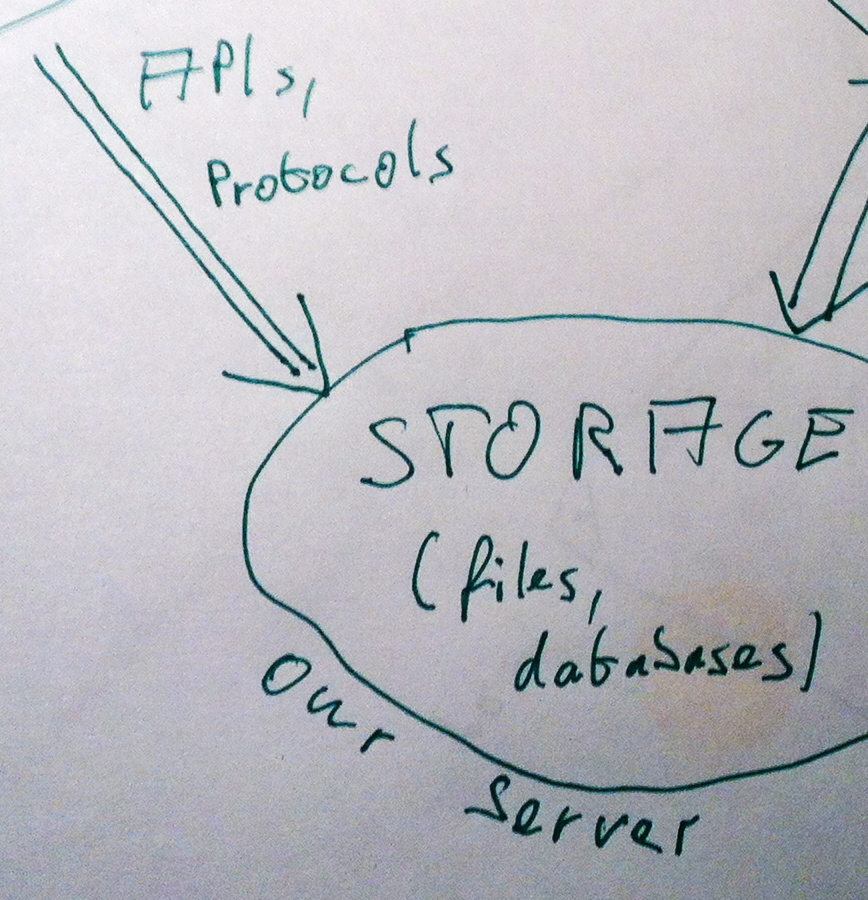 APIs,
Protocols
STORAGE
(files,
databases)
Our
Server